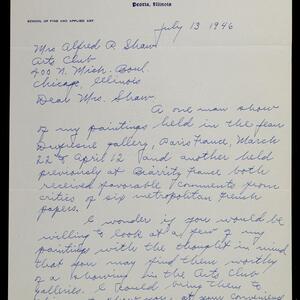 Peoria, Illinois
SCHOOL OF FINE AND APPLIED ART
July 13 1946
Mrs Alfred P. Shaw
Arts Club
400 N. Mich. Boul.
Chicago, Illinois
Dear Mrs. Shaw.
A one man show
of my paintings held in the Jean
Dufresne gallery, Paris France, March
22 to April 12 and another held
previously at Biarritz France both
received favorable comments from
critics of six metropolitan french
papers.
I wonder if you would be
willing to look at a few of my
paintings with the thought in mind
that you may find them worthy
of a showing in the Arts Club
galleries. I could bring them to
at your convenience